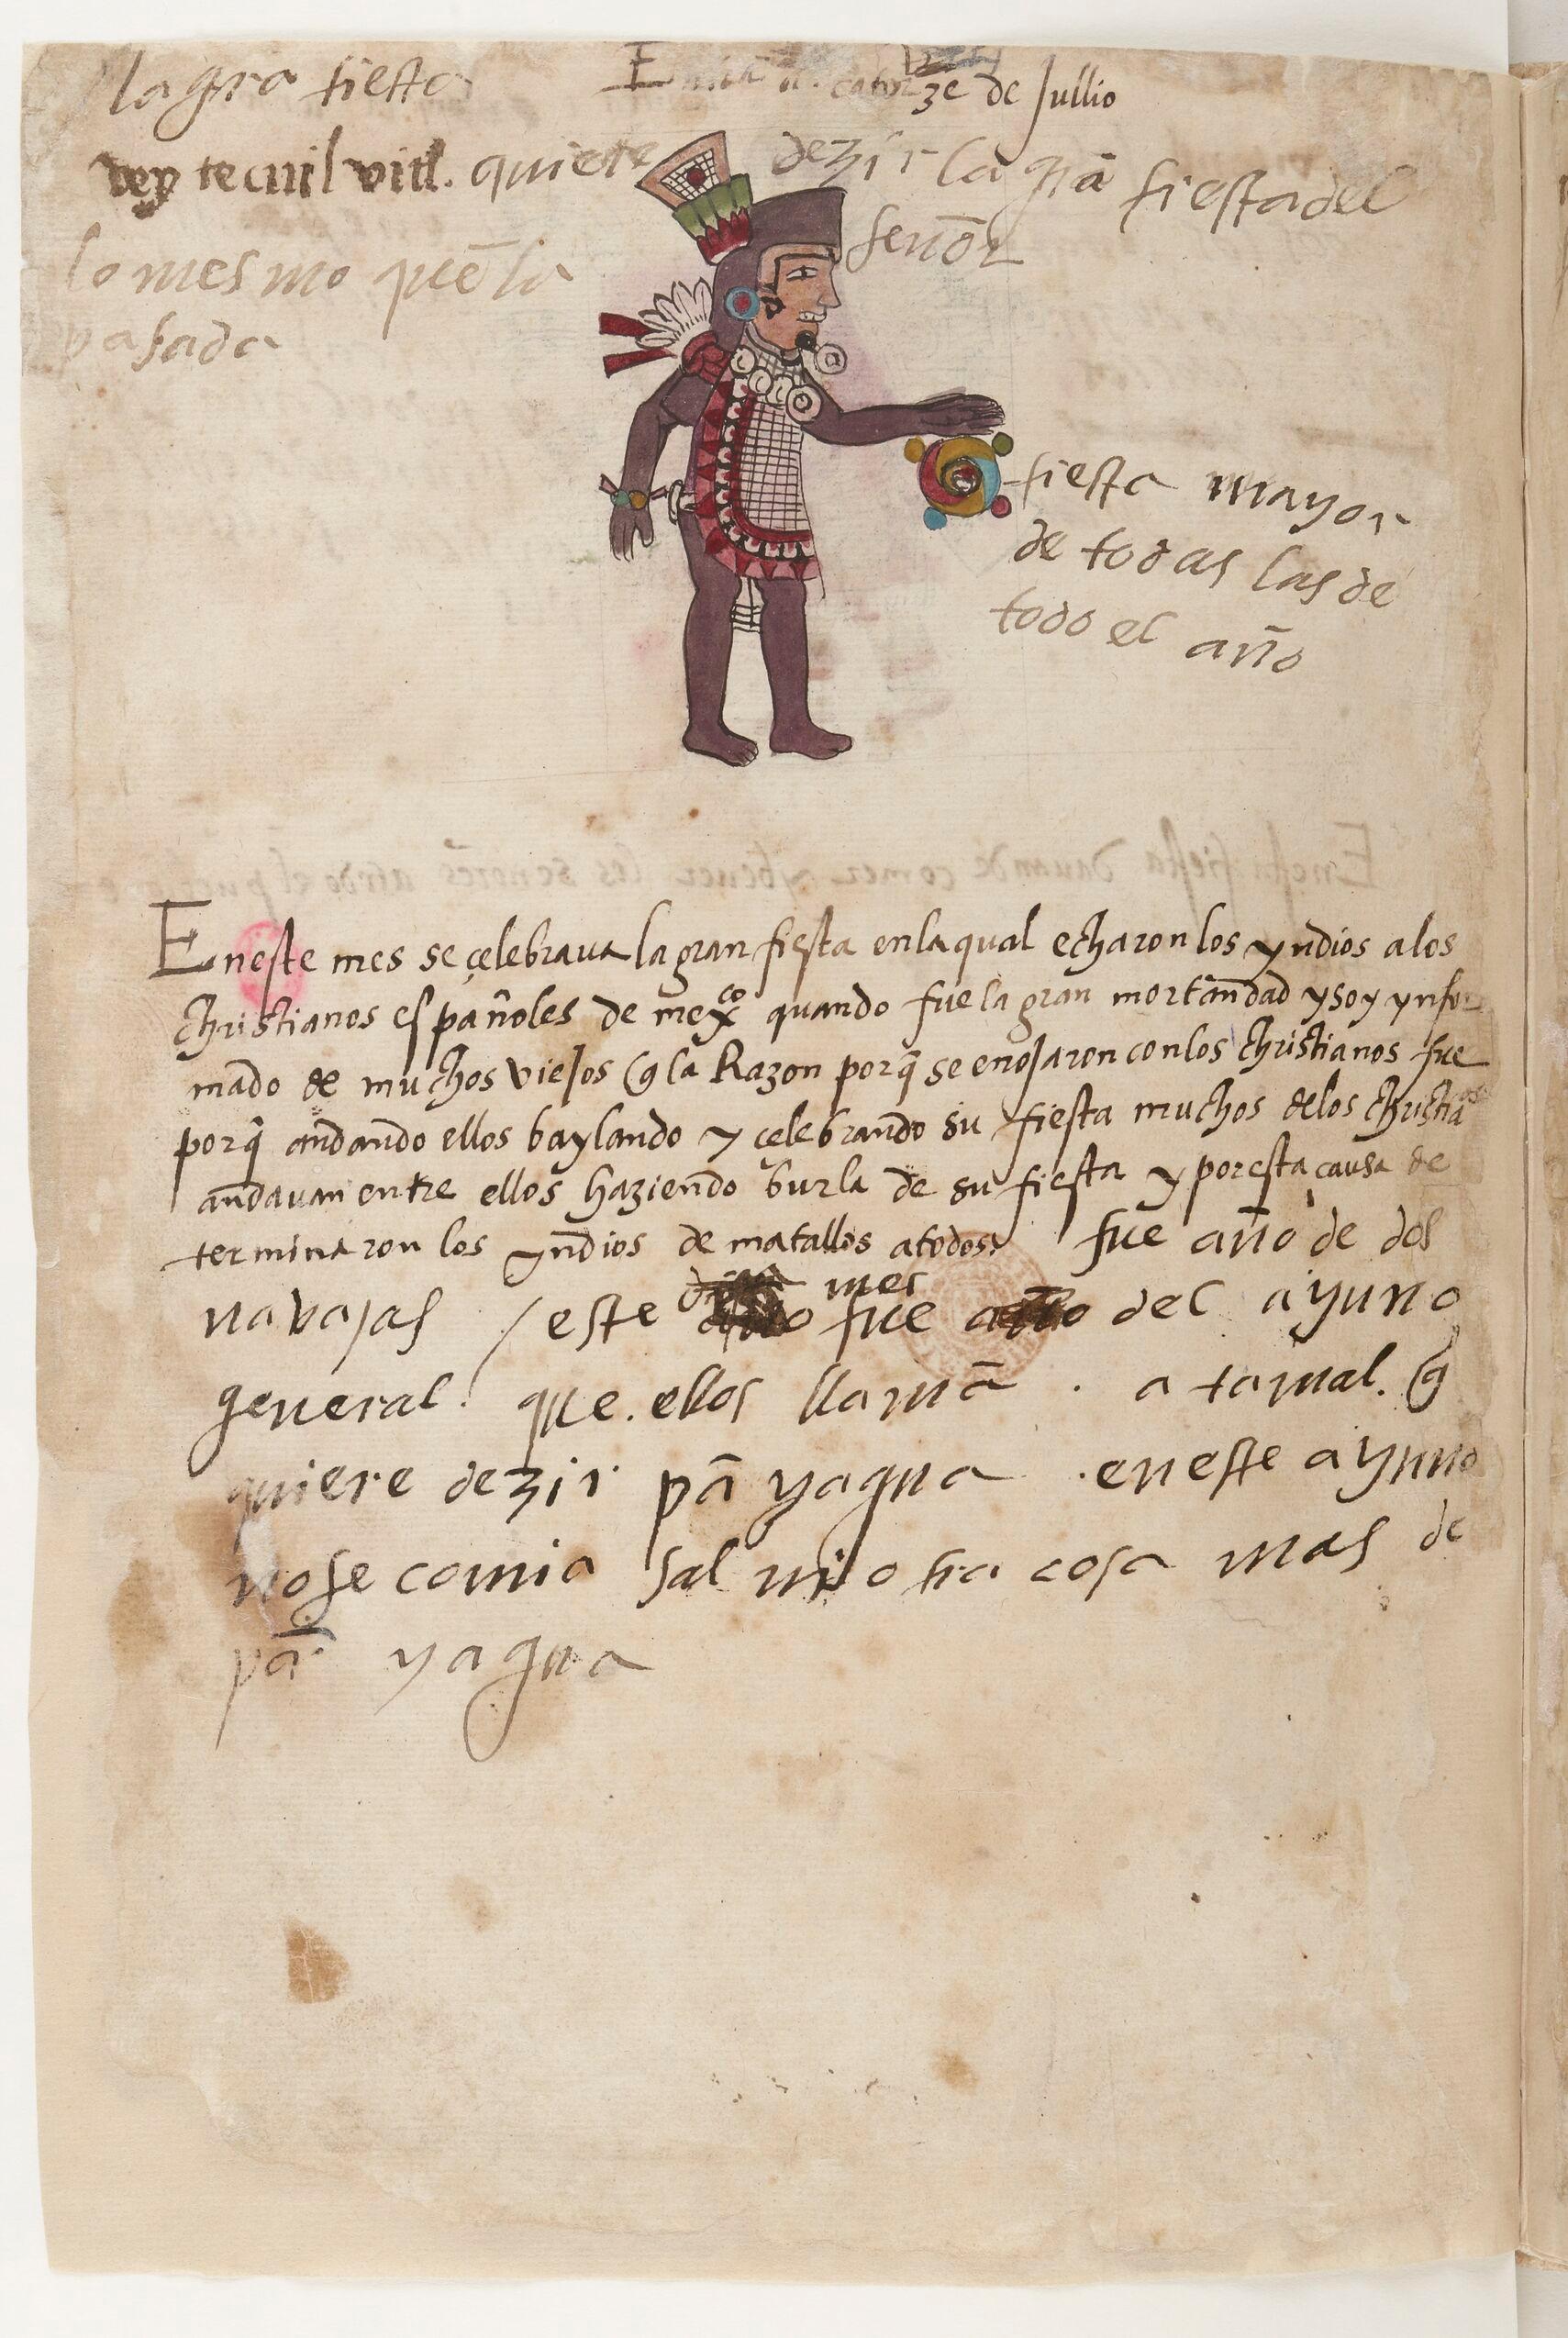 la gra fiesta
catorze de Jullio
vey tecuilvitl. quiere dezir la grā fiesta del
señor
lo mesmo q̄ en la
pasada
fiesta mayor
de todas las de
todo el año
En este mes se çelebraua la gran fiesta en la qual echaron los yndios a los
christianos españoles de mexco quando fue la gran mortandad y soy ynfor
mado de muchos viejos q la Razon porq̄ se enojaron con los christianos fue
porq̄ andando ellos baylando y çelebrando su fiesta muchos de los christianos
andauan entre ellos haziendo burla de su fiesta y por esta causa de
terminaron los yndios de matallos a todos. fue año de dos
navajas / este mes fue del ayuno
general. que. ellos llamā . atamal. q
quiere dezir pā y agua . en este ayuno
no se comia sal ni otra cosa mas de
pā y agua